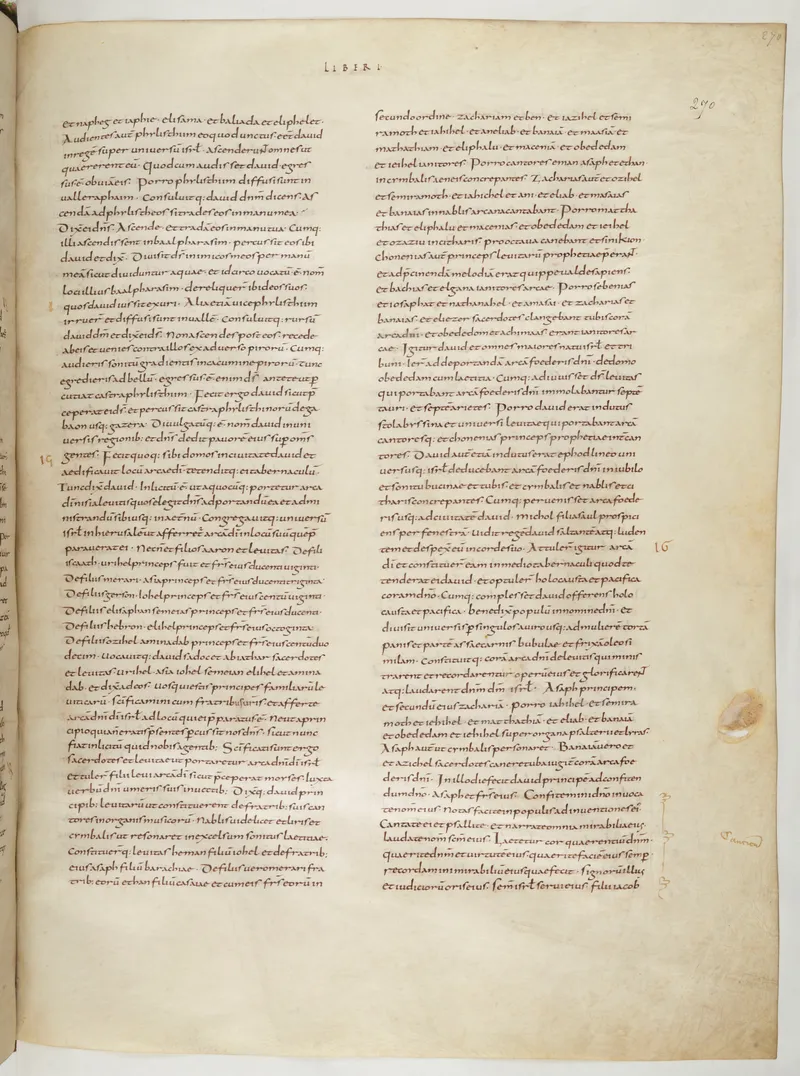 LIBERI
270
& napheg & iaphie · elisama · & baliada & eliphel& ·
Audiens aut phylisthiim eo quod unctus e& dauid
in rege super uniuersu isrl · Ascenderunt omnes ut
quaererent eu · Quod cum audiss& dauid egres
sus e obuia eis · Porro phylisthiim diffusi sunt in
ualle raphaim · Consuluitq; dauid dnm dicens · As
cenda ad phylistheos si trades eos in manu mea ·
Dixit ei dns · Ascende · & trada eos in manu tua · Cumq;
illi ascendissent in baalpharasim · percussit eos ibi
dauid & dix · Diuisit ds inimicos meos per manu
mea sicut diuiduntur aquae · & idcirco uocatu e nom
loci illius baalpharasim · dereliquer ibi deos suos ·
quos dauid iussit exuri · Alia etia uice phylisthiim
irruer & diffusi sunt in ualle · Consuluitq; rursu
dauid dm & dix ei ds · Non ascendes post eos · recede
ab eis & uenies contra illos ex aduerso piroru · Cumq;
audieris sonitu gradientis in cacumine piroru · tunc
egredieris ad bellu · egressus e enim ds · ante te ut p
cutiat castra phylisthiim · Fecit ergo dauid sicut p
ceperat ei ds · & percussit castra phylisthinoru de ga
baon usq; gazera · Diuulgatuq; e nom dauid in uni
uersis regionib; & dns dedit pauore eius sup oms
15
gentes · Fecit quoq; sibi domos in ciuitate dauid &
aedificauit locu arcae di · t&enditq; ei tabernaculu ·
Tunc dix dauid · Inlicitu e ut a quocuq; port&ur arca
di nisi a leuitis quos elegit dns ad portandu ea & ad mi
nistrandu sibi usq; in aetnu · Congregauitq; uniuersu
isrl in hierusale ut afferr& arca di in locu suu que p
parauerat ei · Necn & filios aaron & leuitas · De filii
De filiis merari · asia princeps & frs eius ducenti uiginta ·
De filiis gerson · iohel princeps & frs eius centu
De filiis elisaphan semeias princeps & frs eius ducenti ·
De filiis hebron · elihel princeps & frs eius octoginta ·
De filiis ozihel aminadab princeps & frs eius centu duo
decim · uocauitq; dauid sadoc & abiathar sacerdotes
& leuitas · urihel · asia iohel semeian elihel & amina
dab · & dix ad eos · Uos qui estis principes familiaru le
uiticaru · scificamini cum fratribus uris & afferte
arca dni di isrl ad locu qui ei pparatus e · Ne ut a prin
cipio quia n eratis psentes pcussit nos dns · sicut nunc
fiat inlicitu quid nobis agentib; Scificati sunt ergo
sacerdotes & leuitae ut portarent arca dni di isrl ·
& tuler filii leui arca di sicut pceperat moyses iuxta
uerbu dni umeris suis in uectib; Dixq; dauid prin
cipib; leuitaru ut constituerent de fratrib; suis can
tores in organis musicoru · Nablis uidelic& & lyris &
cymbalis ut resonar& in excelsum sonitus laetitiae ·
Constituerq; leuitas heman filiu iohel · & de fratrib;
eius asaph filiu barachiae · De filiis uero merari fra
trib; eoru ethan filiu casaiae & cum eis frs eoru in
secundo ordine · zachariam & ben · & iazihel & semi
ramoth & iahihel · & ani eliab · & banaia · & maasia · &
mathathiam · & eliphalu · & macenia · & obededom
& ieihel ianitores · Porro cantores eman asaph & ethan
in cymbalis aeneis concrepantes · Zacharias aut & ozihel
& semiramoth · & iahihel & ani · & eliab · & maasias
& banaias in nablis arcana cantabant · Porro matha
thias & eliphalu & macenias · & obededom & ieihel
& ozaziu in citharis · p octaua canebant epinikion ·
Chonenias aut princeps leuitaru prophetiae perat ·
& ad pcinenda melodia erat quippe ualde sapiens ·
& bachias & elgana ianitores arcae · Porro sebenias
& iosaphat & nathanahel · & amasai · & zacharias &
banaias · & eliezer sacerdotes clangebant tubis cora
arca dni · & obededom & achimaas erant ianitores ar
cae · Igitur dauid & omnes maiores natu isrl · & tri
buni · ier ad deportanda arca foederis dni · de domo
obededom cum laetitia · Cumq; adiuuiss& ds leuitas
qui portabant arca foederis dni immolabantur septe
tauri · & septe arietes · Porro dauid erat indutus
stola byssina & uniuersi leuitae qui portabant arca
cantoresq; & chonenias princeps prophetiae int can
tores · Dauid aut etia indutus erat ephod lineo uni
uersusq; isrl deducebant arca foederis dni in iubilo
& sonitu bucinae · & tubis · & cymbalis & nablis & ci
tharis concrepantes · Cumq; perueniss& arca foede
ris usq; ad ciuitate dauid · michol filia saul prospici
ens per fenestra · uidit rege dauid saltante atq; luden
16
tem & despexit eu in corde suo · Attuler igitur arca
di & constituer eam in medio tabernaculi quod te
tenderat ei dauid · & optuler holocausta & pacifica
coram dno · Cumq; compless& dauid offerens holo
causta & pacifica · benedix populu in nomine dni · &
diuisit uniuersis p singulos a uiro usq; ad muliere torta
panis & parte assae carnis bubulae · & frixa oleo si
milam · Constituitq; cora arca dni de leuitis qui minis
trarent & recordarentur operu eius & glorificarent
atq; laudarent dnm dm isrl · Asaph principem ·
& secundu eius zacharia · porro iahihel · & semira
moth & iehihel · & mathathia · & eliab · & banaia ·
& obededom & ieihel super organa psalterii & lyras ·
Asaph aut ut cymbalis personar& · Banaia uero &
& azihel sacerdotes canere tuba iugit cora arca foe
deris dni · In illo die fecit dauid principe ad confiten
dum dno · Asaph & frs eius · Confitemini dno inuoca
te nomen eius · Notas facite in populis adinuentiones ei ·
Cantate ei & psallite · & narrate omnia mirabilia eius
laudate nom scm eius · La&&ur cor quaerentiu dnm ·
quaerite dnm & uirtute eius · quaerite facie eius semp
recordamini mirabiliu eius quae fecit · signoru illius
& iudicioru oris eius · sem isrl serui eius · filii iacob